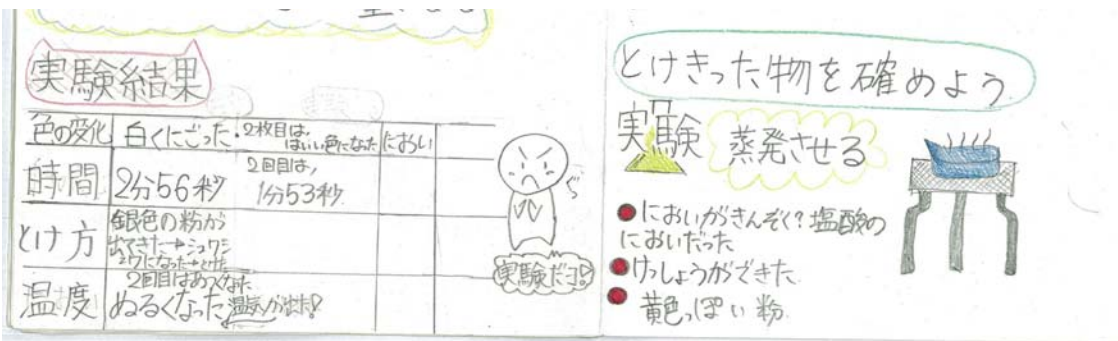 実験結果
色の変化 白くにごった・2枚目は、
はいい色になった
におい
時間 2分56秒
2回目は、
1分53秒
とけ方 銀色の粉が
出てきた→シュワシ
ュワになった→とけた
温度 2回目はあつくなった
ぬるくなった 湯気が出た!
実験だヨ!
とけきった物を確めよう
実験 蒸発させる
●においがきんぞく?塩酸の
においだった
●けっしょうができた
●黄色っぽい粉